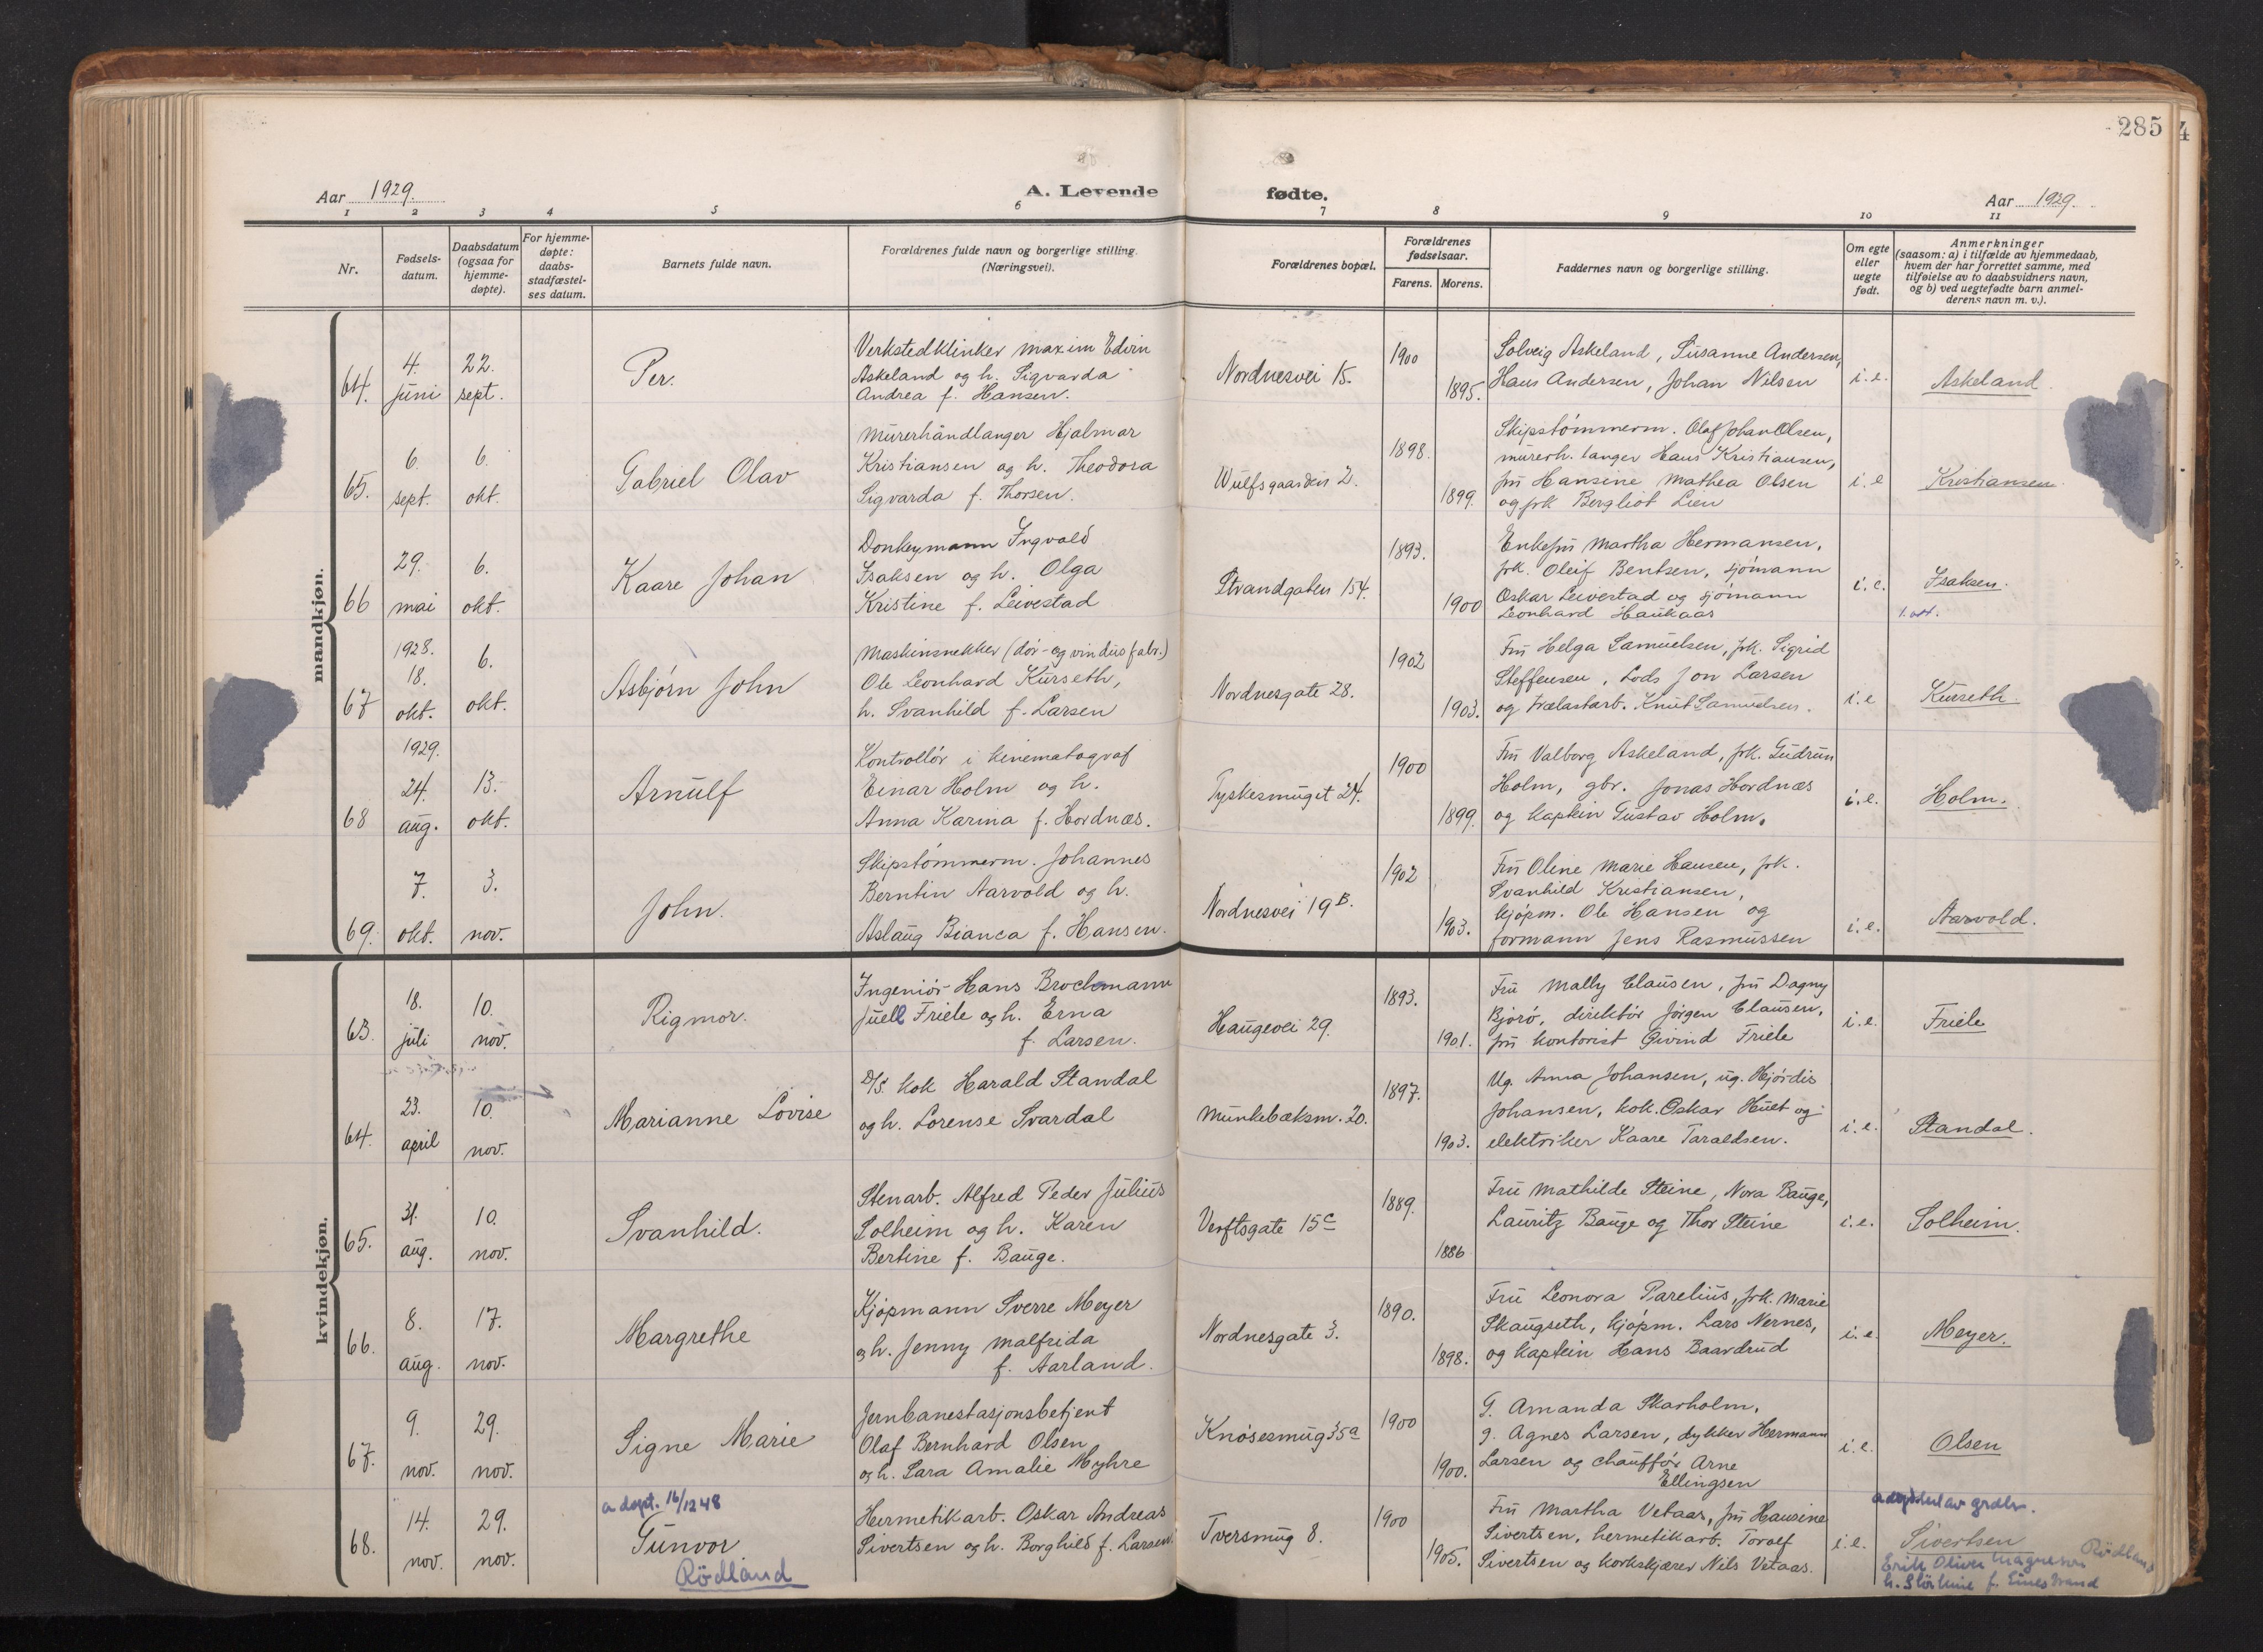 285
4
Aar 1929.
A. Levende
fødte.
Aar 1929.
1
2
3
4
5
6
7
8
9
10
11
Nr.
Fødsels-
datum.
Daabsdatum
(ogsaa for
hjemme-
døpte).
For hjemme-
døpte:
daabs-
stadfæstel-
ses datum.
Barnets fulde navn.
Forældrenes fulde navn og borgerlige stilling.
(Næringsvei).
Forældrenes bopæl.
Forældrenes
fødselsaar.
Farens. Morens.
Faddernes navn og borgerlige stilling.
Om egte
eller
uegte
født.
Anmerkninger
(saasom: a) i tilfælde av hjemmedaab,
hvem der har forrettet samme, med
tilføielse av to daabsvidners navn,
og b) ved uegtefødte barn anmel-
derens navn m. v.).
mandkjøn.
64.
4.
juni
22.
sept.
Per.
Verkstedklinker Maxim Edvin
Askeland og h. Sigvarda
Andrea f. Hansen.
Nordnesvei 15.
1900
1895.
Solveig Askeland, Susanne Andersen,
Hans Andersen, Johan Nilsen
i.e.
Askeland.
65.
6.
sept.
6.
okt.
Gabriel Olav
Murerhåndlanger Hjalmar
Kristiansen og h. Theodora
Sigvarda f. Thorsen.
Wulfsgaarden 2.
1898.
1899.
Skipstømmerm. Olaf Johan Olsen,
murerh.langer Hans Kristiansen,
fru Hansine Mathea Olsen
og frk Bergliot Lien
i.e
Kristiansen.
66
29.
mai
6.
okt.
Kaare Johan
Donkeymann Ingvald
Isaksen og h. Olga
Kristine f. Leivestad
Strandgaten 154.
1893.
1900
Enkefru Martha Hermansen,
frk. Oleif Bentsen, sjømann
Oskar Leivestad og sjømann
Leonhard Haukaas
i.e.
Isaksen.
67
1928.
18.
okt.
6.
okt.
Asbjørn John
Maskinsnekker (dør- og vindusfabr.)
Ole Leonhard Kurseth,
h. Svanhild f. Larsen
Nordnesgate 28.
1902
1903.
Fru Helga Samuelsen, frk. Sigrid
Steffensen, Lods Jon Larsen
og trælastarb. Knut Samuelsen.
i.e
Kurseth.
68
1929.
24.
aug.
13.
okt.
Arnulf
Kontrollør i kinematograf
Einar Holm og h.
Anna Karina f. Hordnæs.
Tyskesmuget 24.
1900
1899.
Fru Valborg Askeland, frk. Gudrun
Holm, gbr. Jonas Hordnæs
og kaptein Gustav Holm.
i.e.
Holm.
69.
7.
okt.
3.
nov.
John.
Skipstømmerm. Johannes
Berntin Aarvold og h.
Aslaug Bianca f. Hansen.
Nordnesvei 19 B.
1902
1903.
Fru Oline Marie Hansen, frk.
Svanhild Kristiansen,
kjøpm. Ole Hansen og
formann Jens Rasmussen
i.e.
Aarvold.
kvindekjøn.
63.
18.
juli
10.
nov.
Rigmor.
Ingeniør Hans Brochmann
Juell Friele og h. Erna
f. Larsen.
Haugevei 29.
1893.
1901.
Fru Mally Clausen, fru Dagny
Bjorø, direktør Jørgen Clausen,
fru kontorist Eivind Friele
i.e.
Friele
64.
23.
april
10.
nov.
Marianne Lovise
D/S. kok Harald Standal
og h. Lorense Svardal
Munkebæksm. 20.
1897.
1903.
Ug. Anna Johansen, ug. Hjørdis
Johansen, kok. Oskar Huet og
elektriker Kaare Taraldsen.
i.e.
Standal.
65.
31.
aug.
10.
nov.
Svanhild.
Stenarb. Alfred Peder Julius
Solheim og h. Karen
Bertine f. Bauge.
Verftsgate 15 c
1889.
1886
Fru Mathilde Steine, Nora Bauge,
Lauritz Bauge og Thor Steine
i.e.
Solheim.
66.
8.
aug.
17.
nov.
Margrethe
Kjøpmann Sverre Meyer
og h. Jenny Malfrida
f. Aarland.
Nordnesgate 3.
1890.
1898.
Fru Leonora Parelius, frk. Marie
Skaugseth, kjøpm. Lars Nernes,
og kaptein Hans Baardrud
i.e.
Meyer.
67.
9.
nov.
29.
nov.
Signe Marie
Jernbanestasjonsbetjent
Olaf Bernhard Olsen
og h. Sara Amalie Myhre
Knøsesmug 35a
1900
1900.
G. Amanda Skarholm,
g. Agnes Larsen, dykker Hermann
Larsen og chauffør Arne
Ellingsen
i.e.
Olsen
68.
14.
nov.
29.
nov.
adopt. 16/12 48
Gunvor
Rödland
Hermetikarb. Oskar Andreas
Sivertsen og h. Borghild f. Larsen.
Tversmug 8.
1900
1905.
Fru Martha Vetaas, fru Hansine
Sivertsen, hermetikarb. Toralf
Sivertsen og korkskjærer Nils Vetaas.
i.e.
av
Sivertsen
Erik Oliver Magneson Rödland